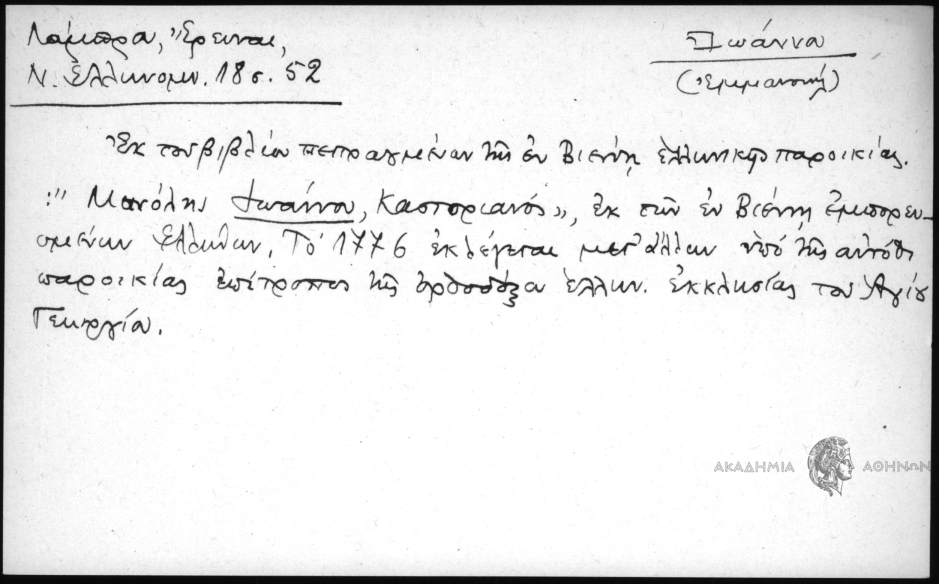 Λάμπρου, Ἔρευναι,
Ν. Ἑλληνομν. 18 σ. 52
Ἰωάννου
(Ἐμμανουήλ)
Ἐκ του βιβλίου πεπραγμένων τῆς ἐν Βιέννῃ ἑλληνικῆς παροικίας.
:" Μανόλης Ἰωάννου, Καστοριανός», ἐκ τῶν ἐν Βιέννῃ ἐμπορευ-
ομένων Ἑλλήνων. Τὸ 1776 ἐκλέγεται μετ' ἄλλων ὑπὸ τῆς αὐτόθι
παροικίας ἐπίτροπος τῆς ὀρθοδόξου ἑλλην. ἐκκλησίας του Ἁγίου
Γεωργίου.
ΑΚΑΔΗΜΙΑ ΑΘΗΝΩΝ